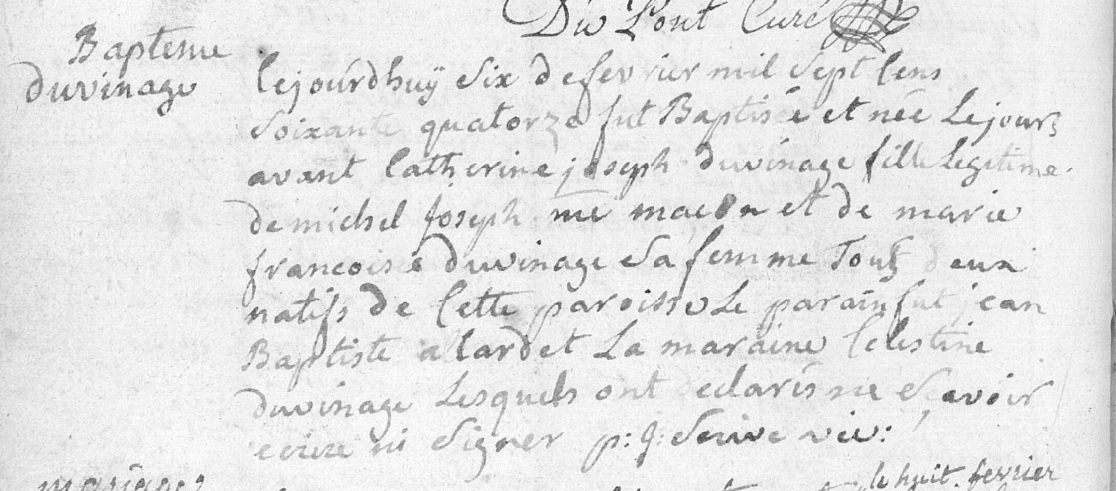 Du Pont Curé
Bapteme
duvinage
lejourdhuÿ Six de fevrier mil Sept Cens
Soixante quatorze fut Baptisée et née Le jours
avant Catherine joseph duvinage fille Legitime
de michel joseph me macon et de marie
francoise duvinage Sa femme Touts deux
natifs de Cette paroisse Le parain fut jean
Baptiste allard et La maraine Celestine
duvinage Lesquels ont declarés ne Scavoir
ecrire ni Signer p: J: Serive vic:
mariage
le huit fevrier